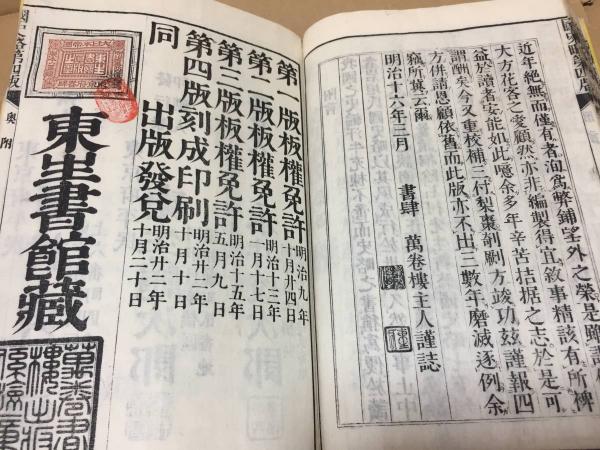 近年絶無而僅有者洵為弊鋪望外之榮是雖
大方花客之愛顧然亦非編製得宜敘事精該有所裨
益於讀者安能如此噫余多年辛苦拮据之志於是可
謂酬矣今又重校補三付梨棗剞劂方竣功茲謹報四
方併請恩顧依舊而此版亦不出三數年磨滅逐例余
竊所冀云爾
明治十六年三月　書肆　萬卷樓主人謹誌
第一版板權免許明治九年十月廿四日
第二版板權免許明治十三年一月十七日
第三版板權免許明治十五年五月九日
第四版刻成印刷明治廿二年十月十日
同　出版發兌明治廿二年十月二十日
東生書館藏
奧附